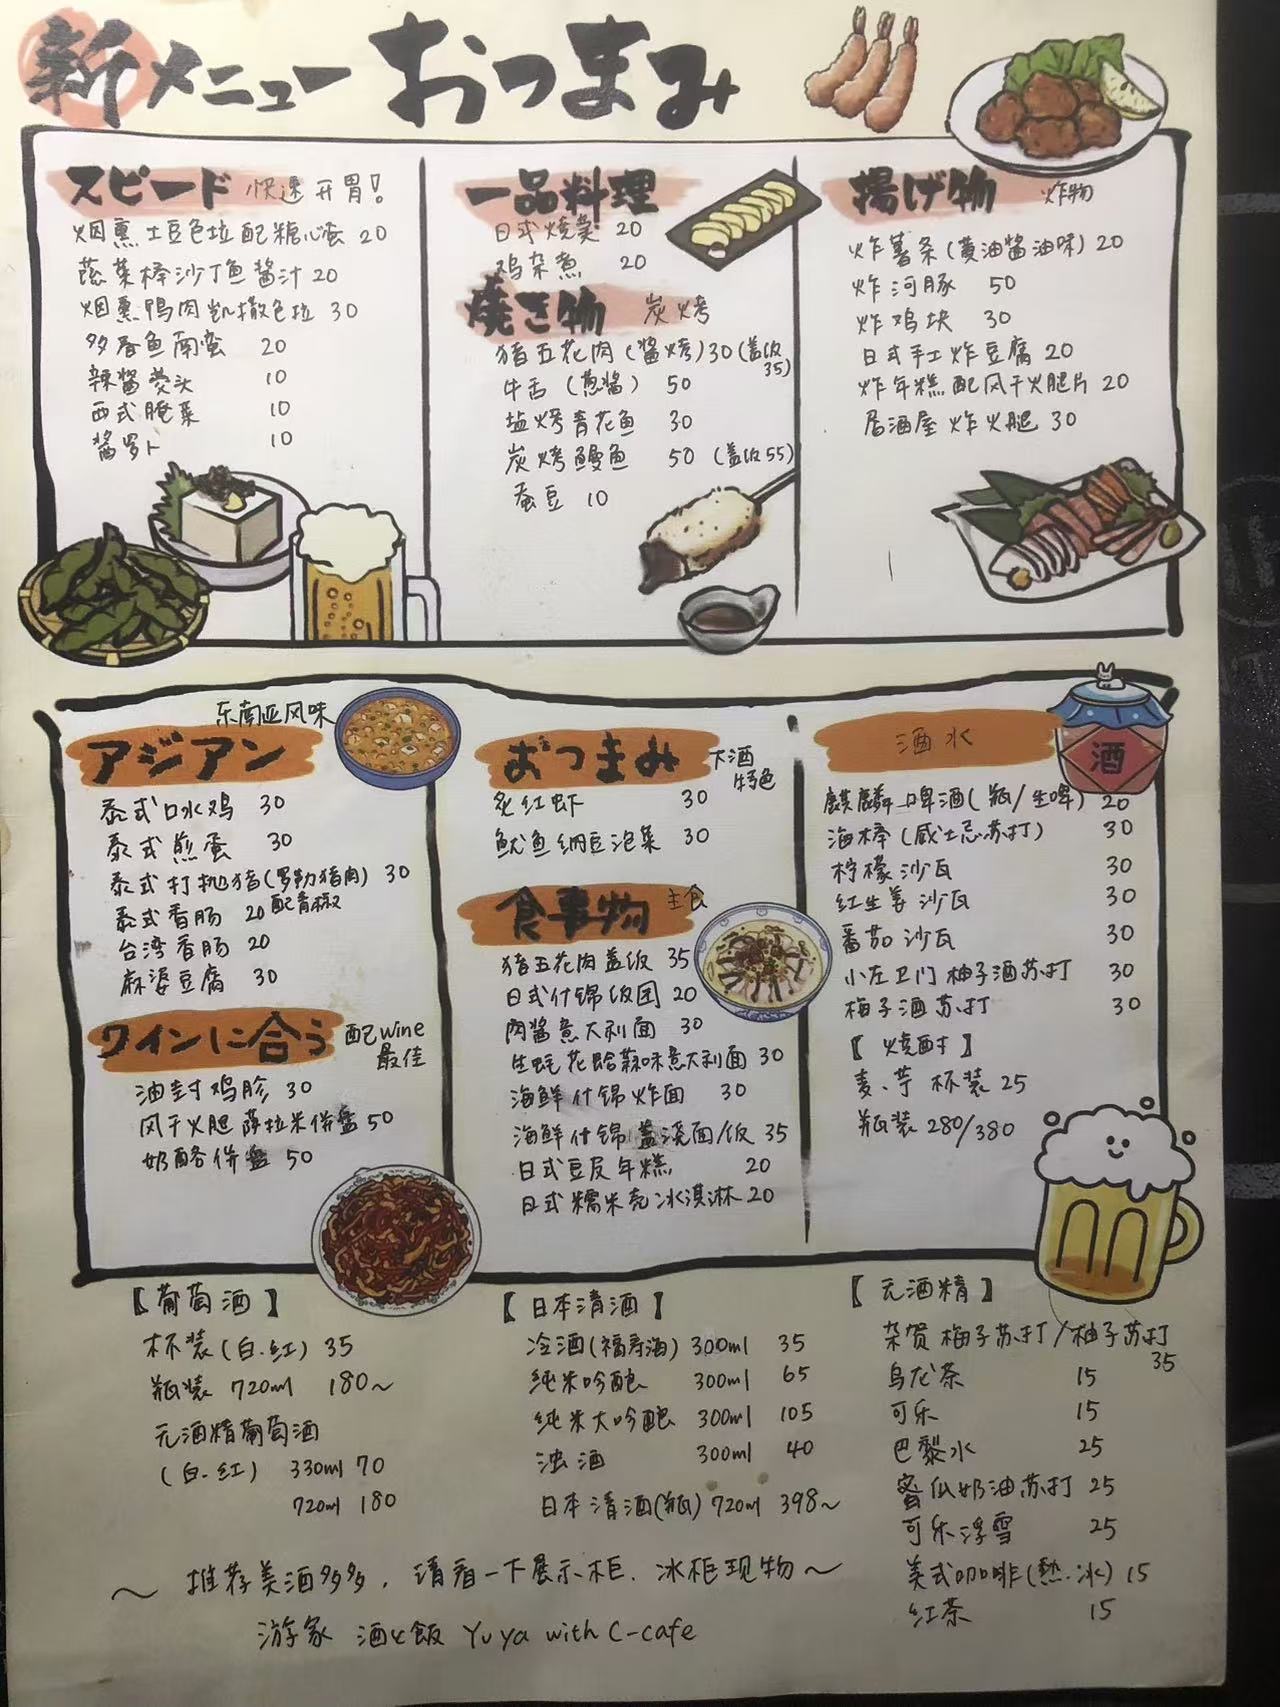 新メニューおつまみ
スピード 快速开胃!
烟熏土豆色拉配糖心蛋 20
蔬菜棒沙丁鱼酱汁 20
烟熏鸭肉凯撒色拉 30
多春鱼南蛮 20
辣酱荞头 10
西式腌菜 10
酱罗卜 10
一品料理
日式烧卖 20
鸡杂煮 20
焼き物 炭烤
猪五花肉(酱烤)30(盖饭35)
牛舌(葱酱) 50
盐烤青花鱼 30
炭烤鳗鱼 50 (盖饭55)
蚕豆 10
揚げ物 炸物
炸薯条(黄油酱油味) 20
炸河豚 50
炸鸡块 30
日式手工炸豆腐 20
炸年糕配风干火腿片 20
居酒屋炸火腿 30
东南亚风味
アジアン
泰式口水鸡 30
泰式煎蛋 30
泰式打抛猪(罗勒猪肉) 30
泰式香肠 20 配青椒
台湾香肠 20
麻婆豆腐 30
ワインに合う 配wine最佳
油封鸡胗 30
风干火腿萨拉米併盘 50
奶酪併盘 50
おつまみ 大酒特色
炙红虾 30
鱿鱼纳豆泡菜 30
食事物 主食
猪五花肉盖饭 35
日式什锦饭团 20
肉酱意大利面 30
生蚝花蛤蒜味意大利面 30
海鲜什锦炸面 30
海鲜什锦盖浇面/饭 35
日式豆皮年糕 20
日式糯米壳冰淇淋 20
酒水
酒
麒麟啤酒(瓶/生啤) 20
海棒(威士忌苏打) 30
柠檬沙瓦 30
红生姜沙瓦 30
番茄沙瓦 30
小左卫门柚子酒苏打 30
梅子酒苏打 30
【烧酎】
麦、芋 杯装 25
瓶装 280/380
【葡萄酒】
杯装(白.红) 35
瓶装 720ml 180~
无酒精葡萄酒
(白.红) 330ml 70
720ml 180
【日本清酒】
冷酒(福寿海) 300ml 35
纯米吟酿 300ml 65
纯米大吟酿 300ml 105
浊酒 300ml 40
日本清酒(瓶) 720ml 398~
【无酒精】
杂贺 梅子苏打/柚子苏打 35
乌龙茶 15
可乐 15
巴黎水 25
蜜瓜奶油苏打 25
可乐浮雪 25
美式咖啡(熱.冰) 15
红茶 15
~ 推荐美酒多多,请看一下展示柜.冰柜现物~
游家 酒と飯 Yuya with C-cafe